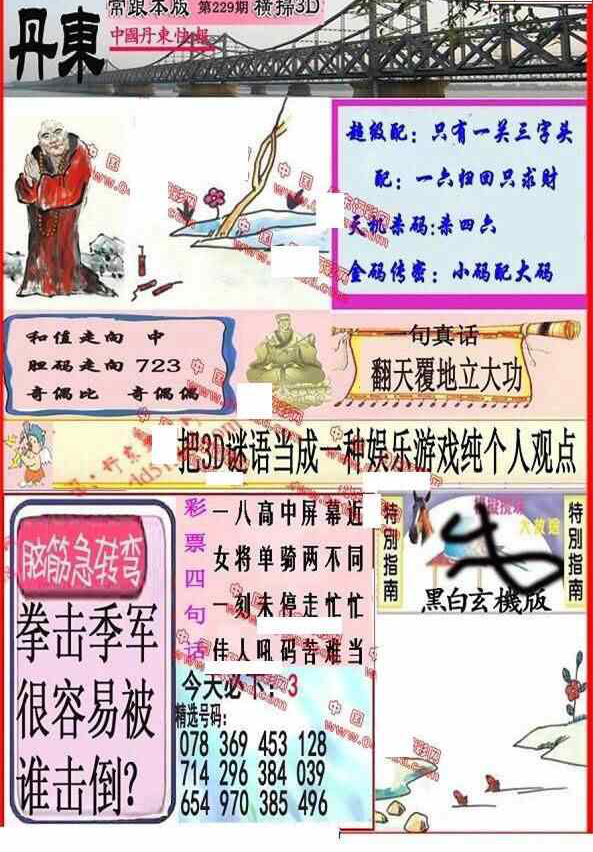 常跟本版 第229期 橫掃3D
丹東
中國丹東快報
超级配：只有一关三字头
配：一六归回只求财
天机杀码:杀四六
金码传密：小码配大码
和值走向 中
胆码走向 723
奇偶比 奇偶偶
一句真话
翻天覆地立大功
把3D谜语当成一种娱乐游戏纯个人观点
脑筋急转弯
拳击季军
很容易被
谁击倒？
彩票四句话
一八高中屏幕近
女将单骑两不同
一刻未停走忙忙
佳人吼码苦难当
今天必下：3
精选号码：
078 369 453 128
714 296 384 039
654 970 385 496
特別指南
特別指南
大放送
黑白玄機版